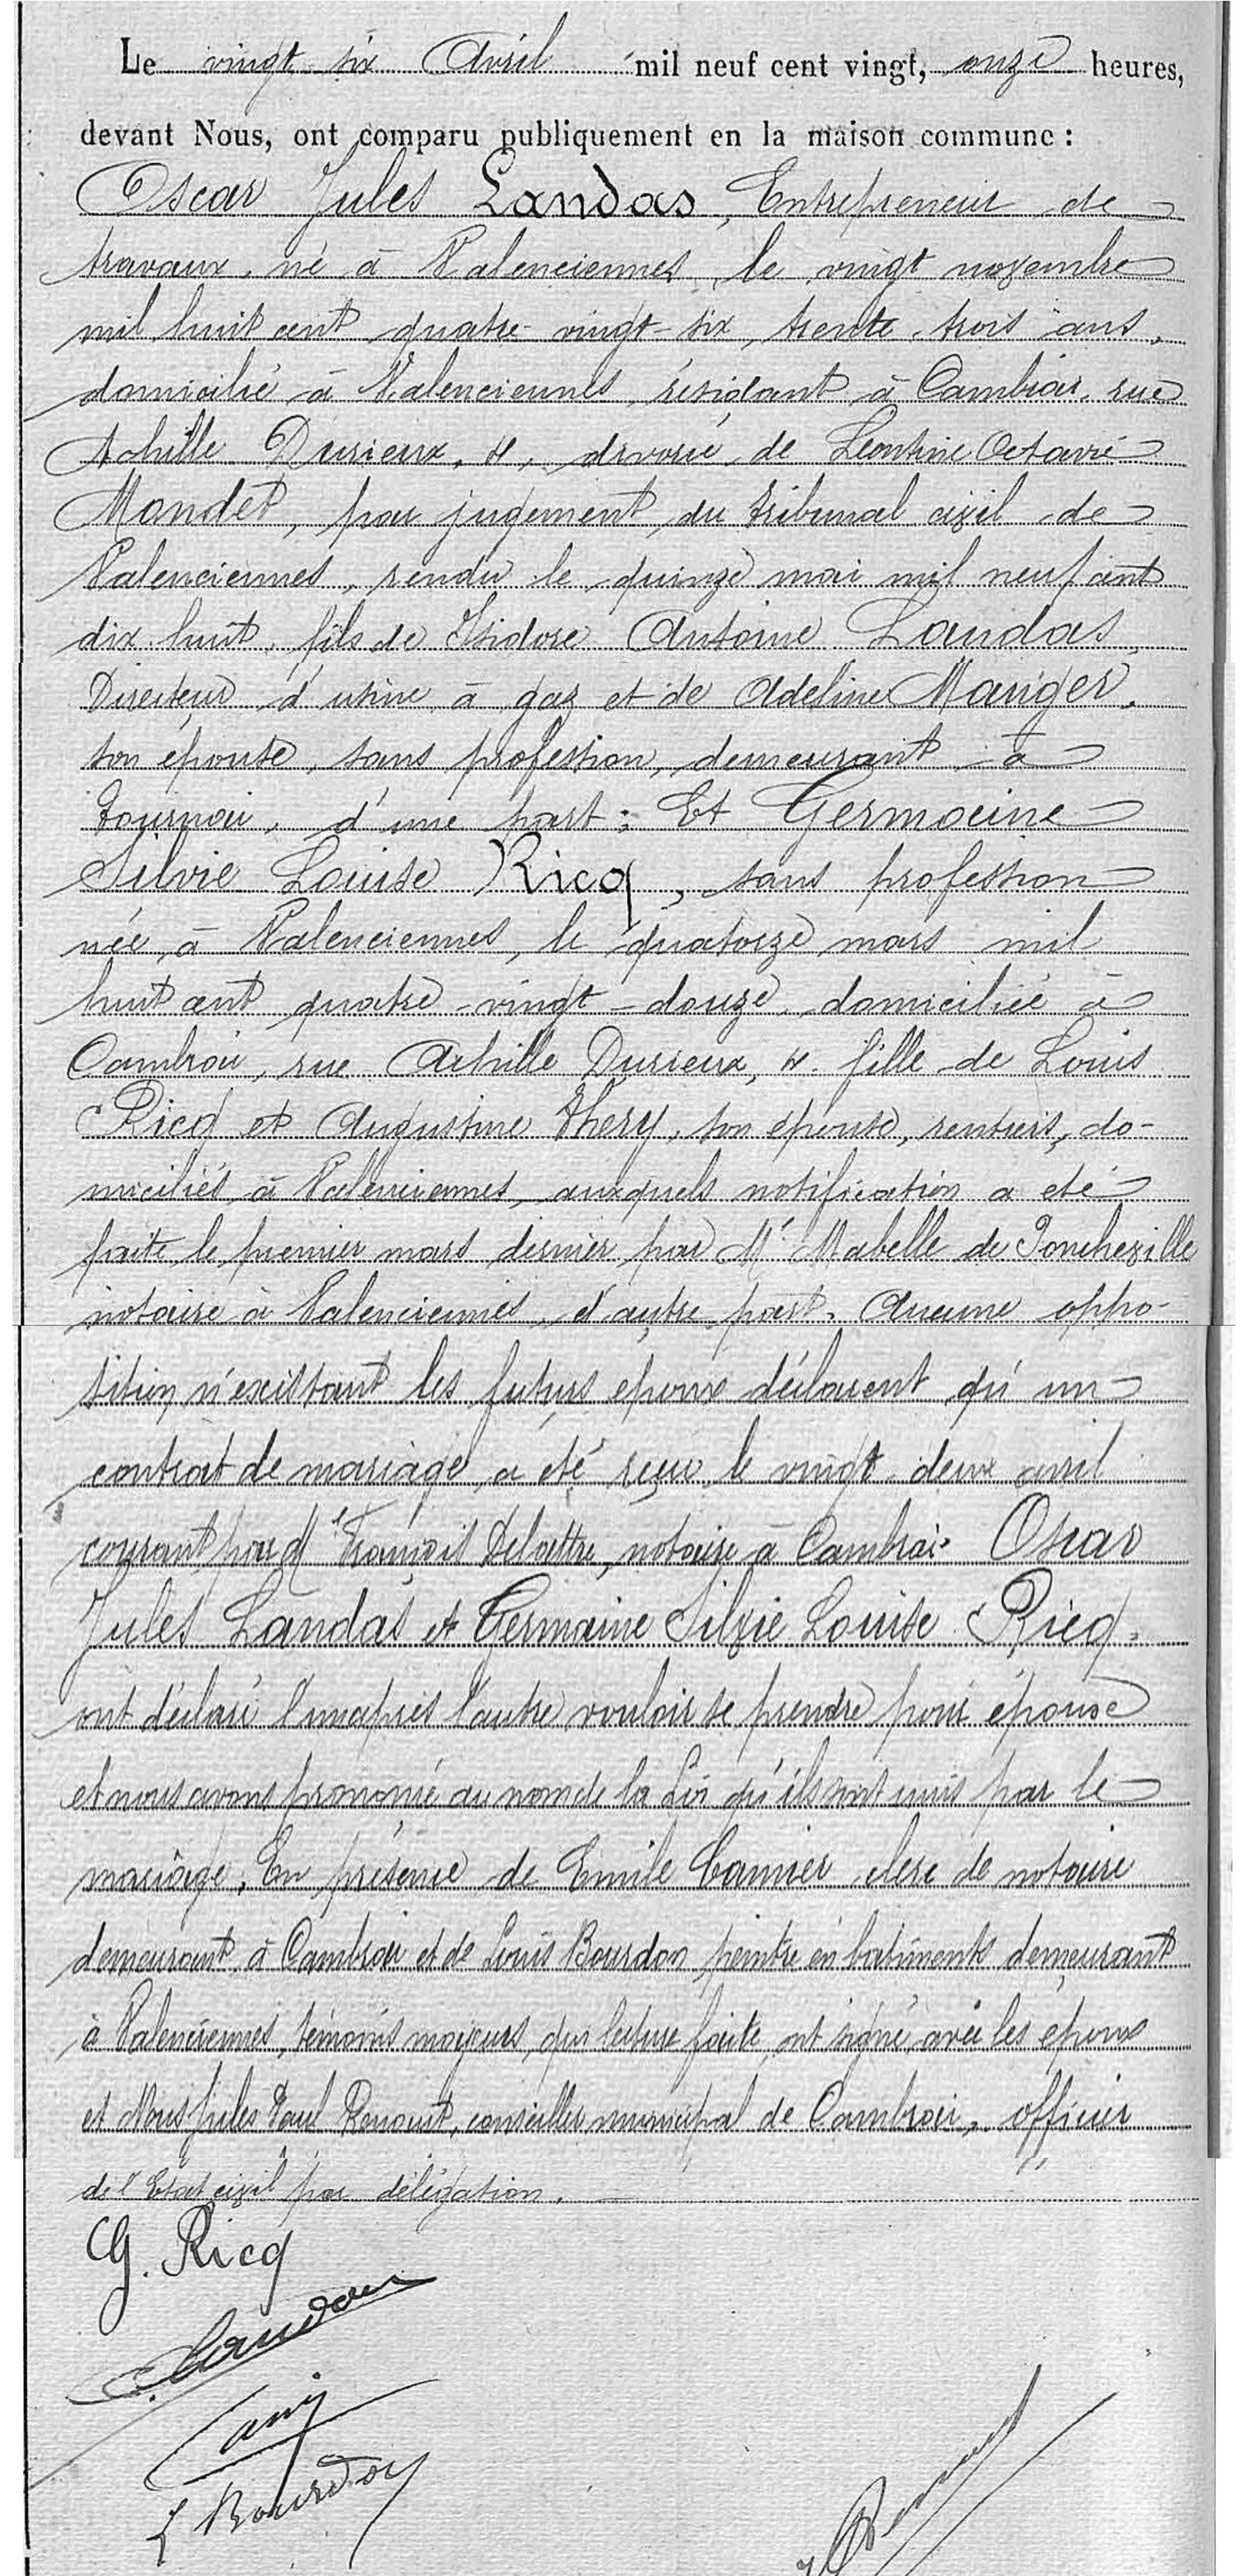 Le vingt six Avril mil neuf cent vingt, onze heures,
devant Nous, ont comparu publiquement en la maison commune :
Oscar Jules Landas, Entrepreneur de
travaux, né à Valenciennes, le vingt novembre
mil huit cent quatre-vingt-six, trente-trois ans,
domicilié à Valenciennes, résidant à Cambrai, rue
Achille Durieux, 4, divorcé de Léontine Octavie
Mandet, par jugement du tribunal civil de
Valenciennes, rendu le quinze mai mil neuf cent
dix-huit, fils de Isidore Antoine Landas
Directeur d'usine à gaz et de Adeline Manger,
son épouse, sans profession, demeurant à
Tournai, d'une part ; Et Germaine
Silvie Louise Ricq, sans profession
née à Valenciennes, le quatorze mars mil
huit cent quatre-vingt-douze, domiciliée à
Cambrai, rue Achille Durieux, 4. fille de Louis
Ricq et Augustine Thery, son épouse, rentiers, do-
miciliés à Valenciennes, auxquels notification a été
faite le premier mars dernier par Me Mabelle de Poncheville
notaire à Valenciennes, d'autre part. Aucune oppo-
sition n'existant les futurs époux déclarent qu'un
contrat de mariage a été reçu le vingt-deux avril
courant par François Delattre, notaire à Cambrai. Oscar
Jules Landas et Germaine Silvie Louise Ricq,
ont déclaré l'un après l'autre vouloir se prendre pour époux
et nous avons prononcé au nom de la Loi qu'ils sont unis par le
mariage. En présence de Emile Camier clerc de notaire
demeurant à Cambrai et de Louis Bourdon peintre en bâtiments demeurant
à Valenciennes, témoins majeurs, qui lecture faite, ont signé avec les époux
et Nous Jules Paul conseiller municipal de Cambrai, officier
de l'Etat civil par délégation.
G. Ricq
Landas
L Bourdon